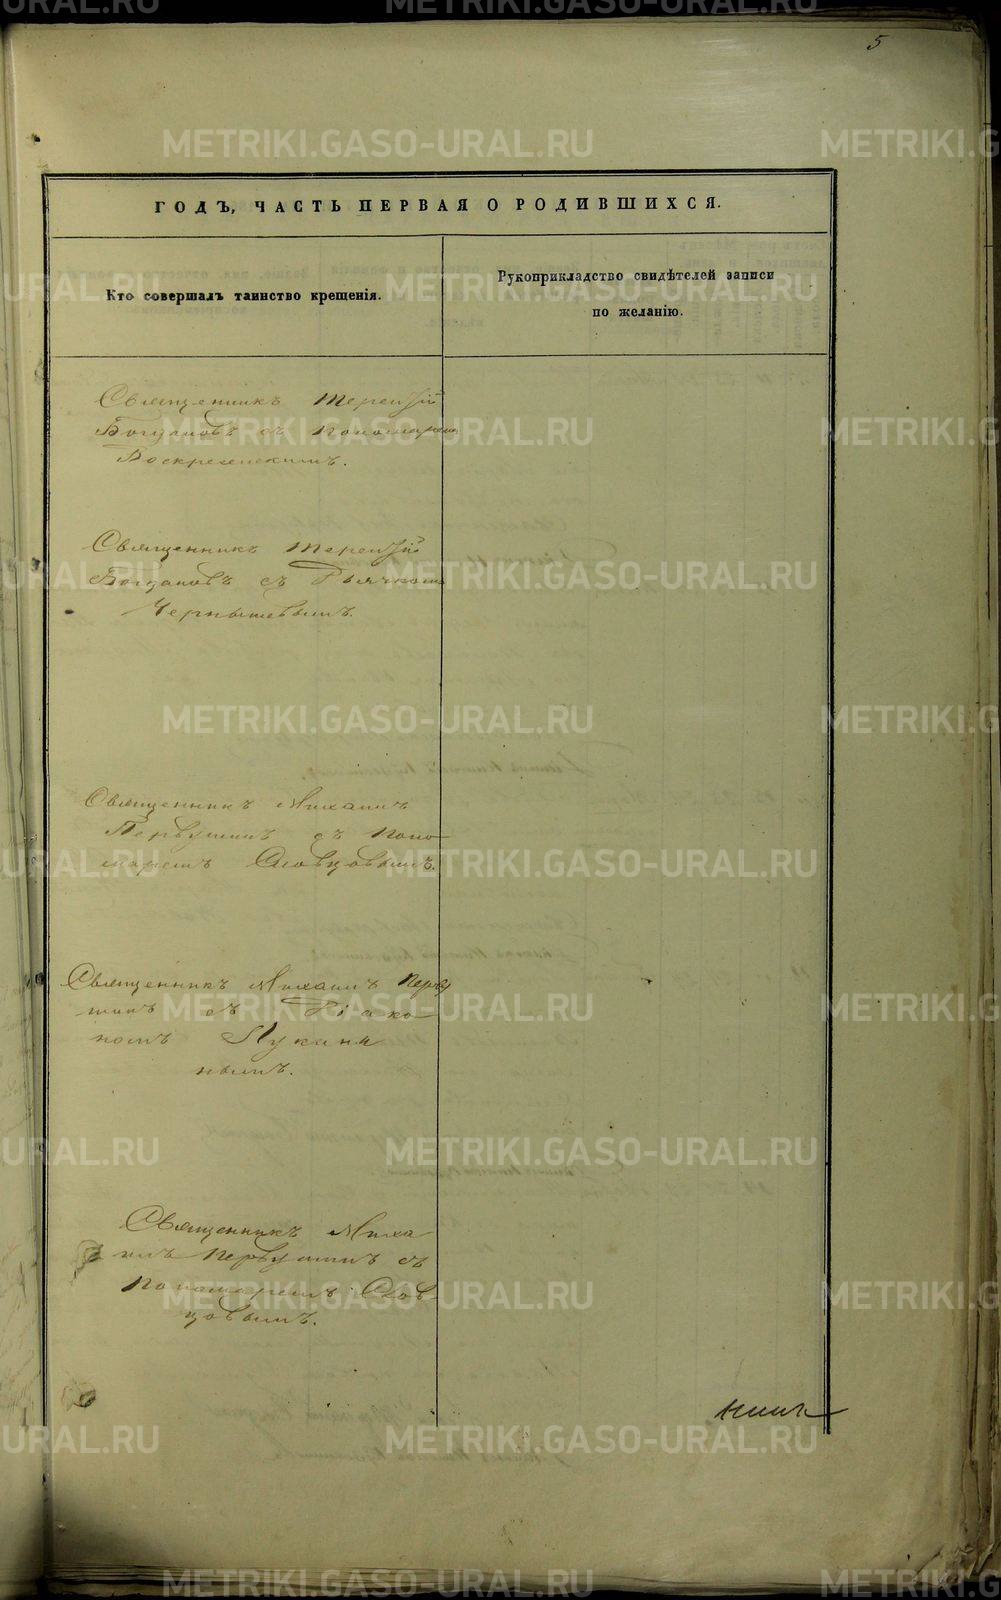 5
ГОДЪ, ЧАСТЬ ПЕРВАЯ О РОДИВШИХСЯ.
Кто совершалъ таинство крещенія.
Рукоприкладство свидѣтелей записи
по желанію.
Священникъ Терентій
Богдановъ съ Пономаремъ
Воскресенскимъ.
Священникъ Терентій
Богдановъ съ Дьячкомъ
Чернышевымъ.
Священникъ Михаилъ
Первушинъ съ Поно
маремъ Словцовымъ.
Священникъ Михаилъ Перву
шинъ съ Діако
номъ Лукани
нымъ.
Священникъ Миха
илъ Первушинъ съ
Пономаремъ Слов
цовымъ.
METRIKI.GASO-URAL.RU